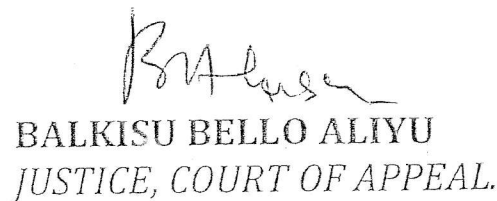 BALKISU BELLO ALIYU
JUSTICE, COURT OF APPEAL.